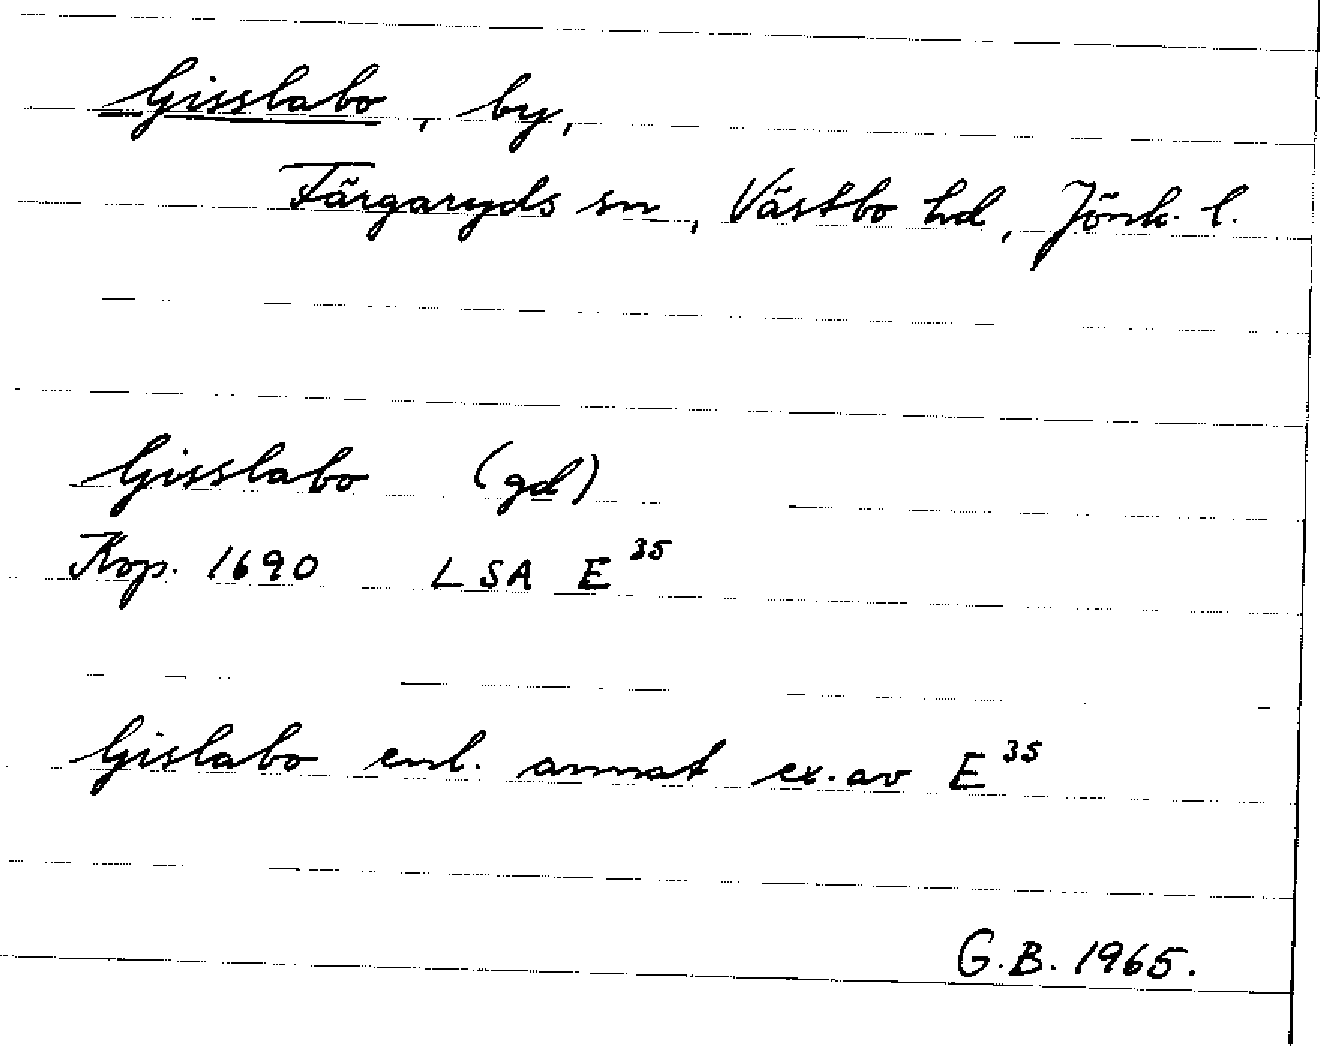 Gisslabo, by,
Färgaryds sn, Västbo hd, Jönk. l.
Gisslabo (gd)
Kop. 1690 LSA E 35
Gislabo enl. annat ex. av E 35
G.B. 1965.